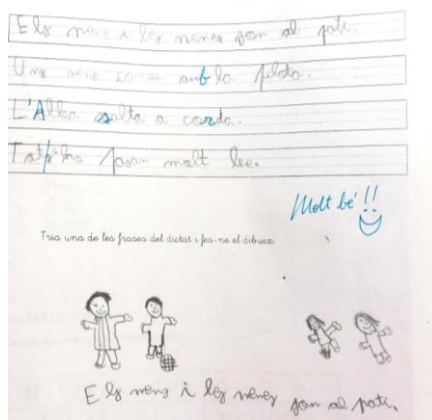 Els nens i les nenes son al pati.
Uns nens amb la pilota.
L'Alba salta a corda.
Tots molt
Molt bé!!
Tria una de les frases del dictat i fes-ne el dibuix:
Els nens i les nenes son al pati.